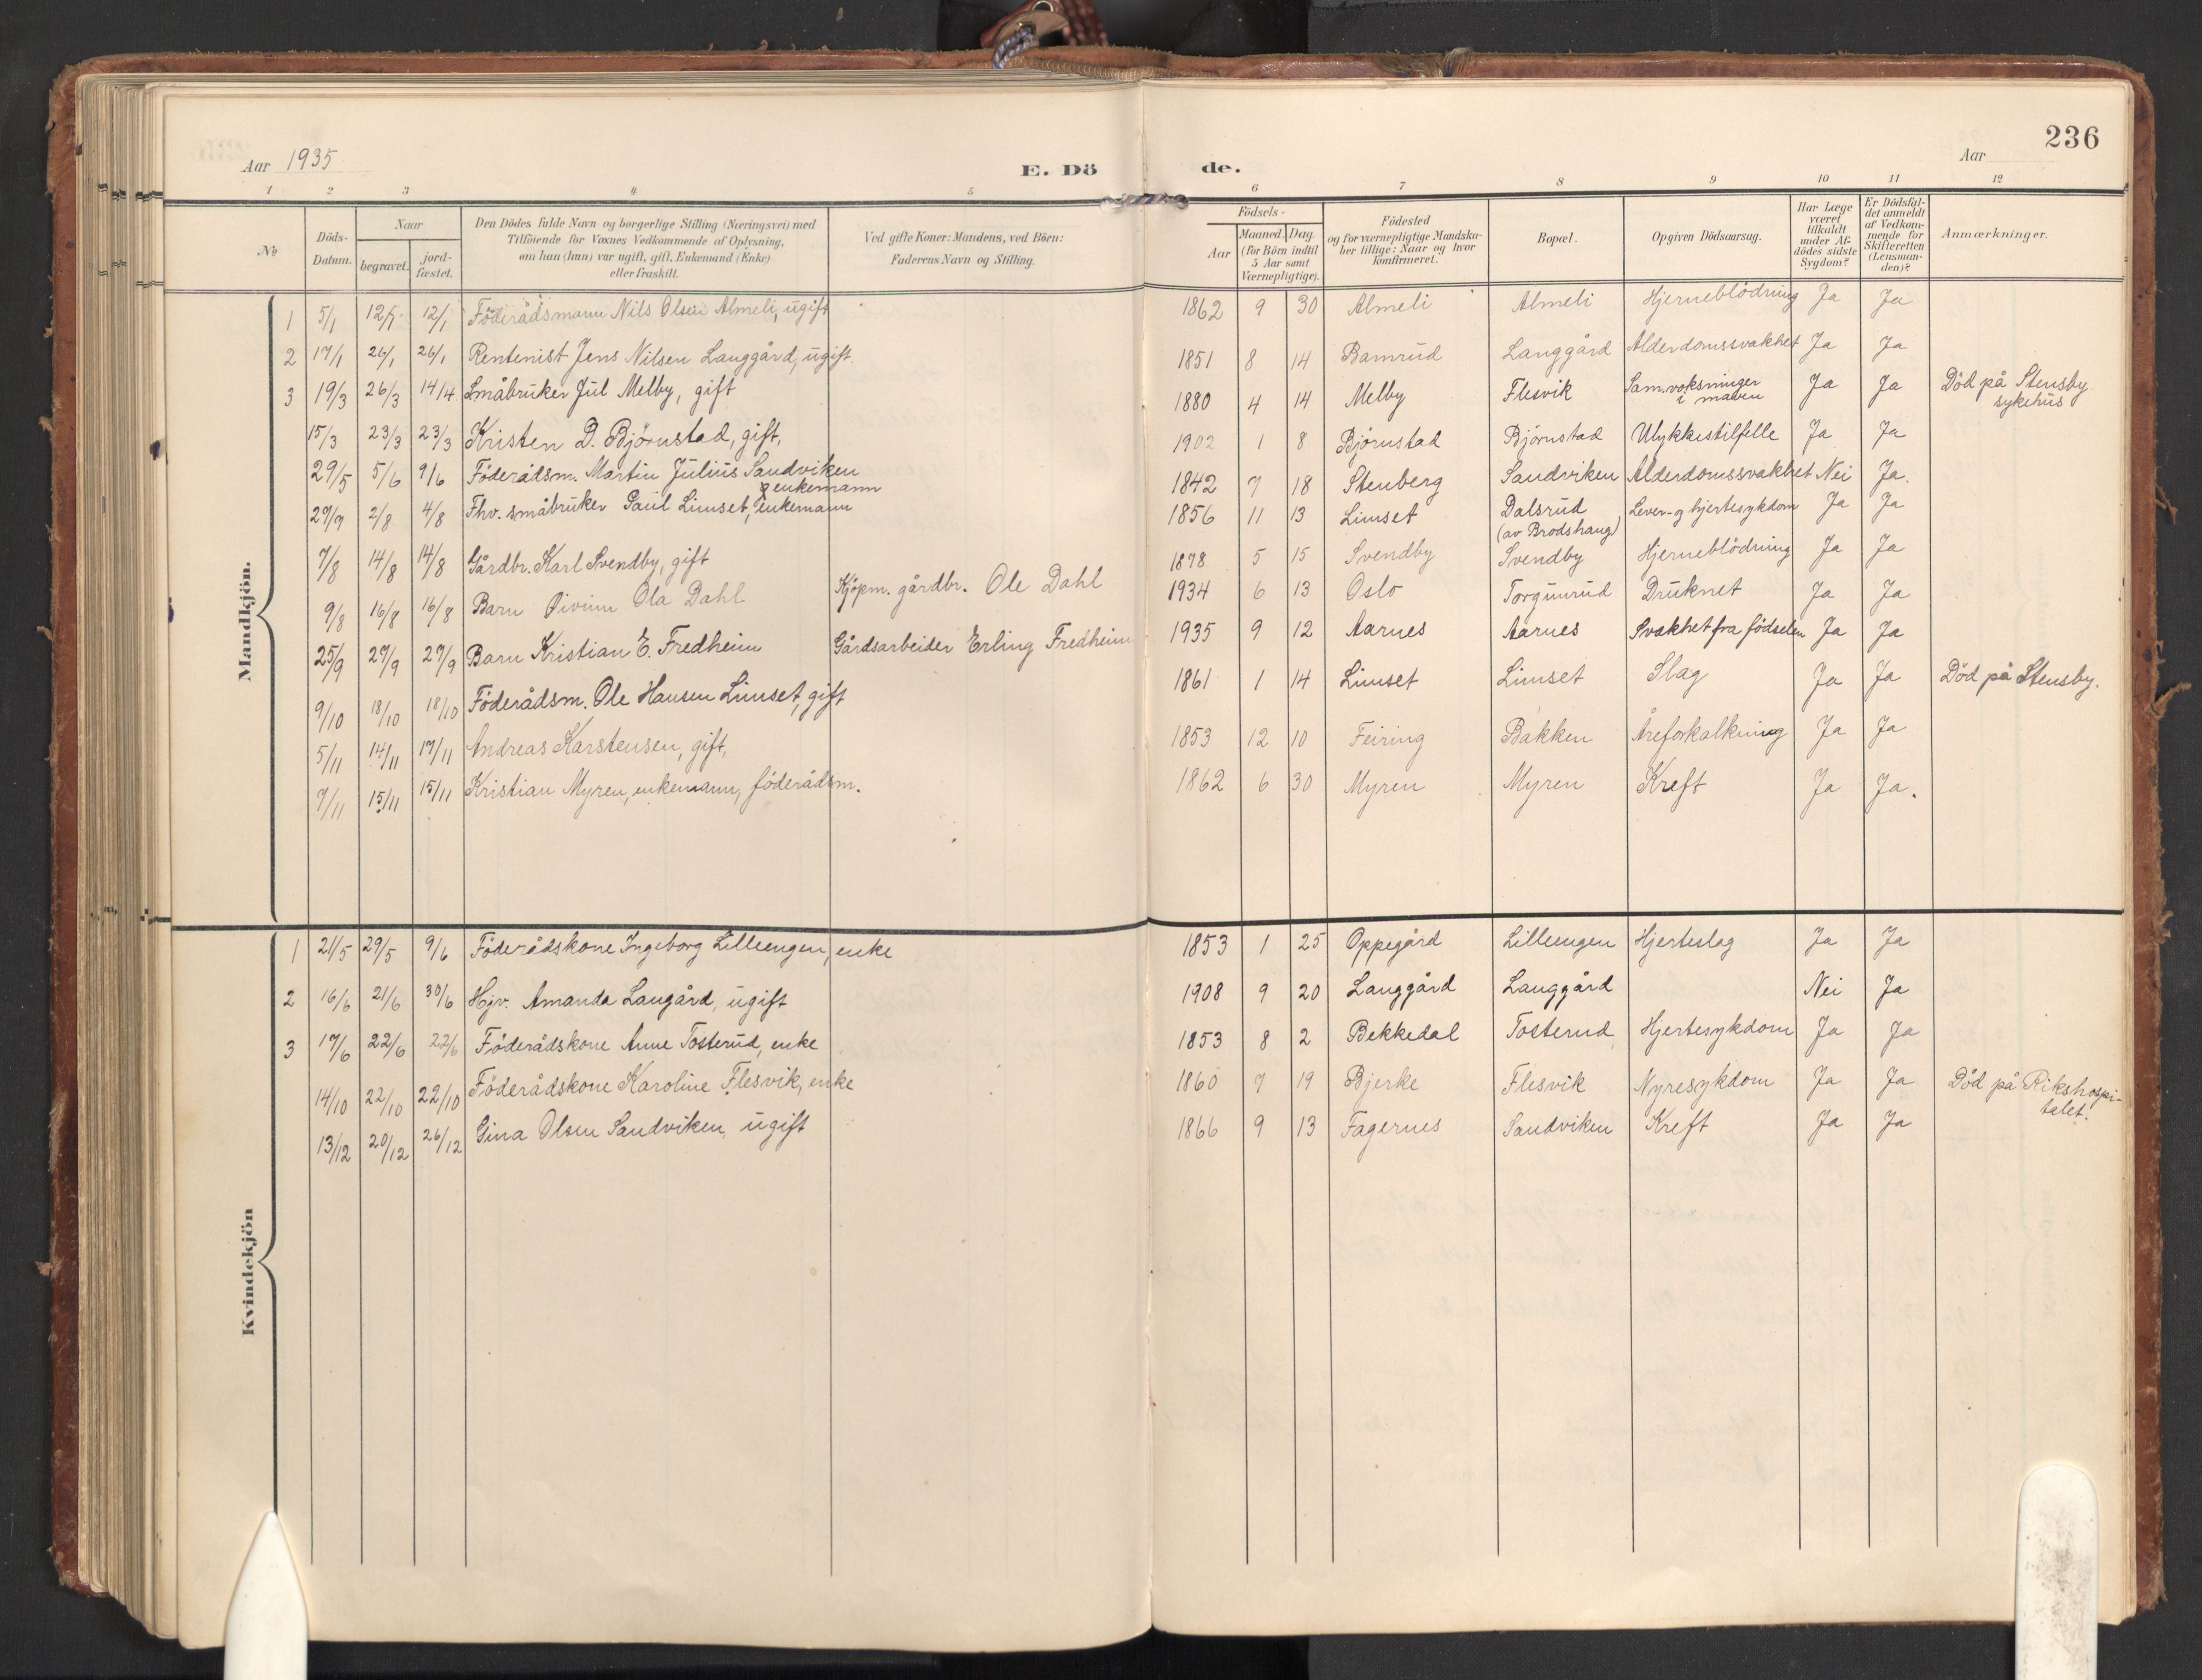 236
Aar 1935
E. Dö
de.
Aar
1 2 3 4 5 6 7 8 9 10 11 12
No
Döds-
Datum.
Naar
begravet.
jord-
fæstet.
Den Dödes fulde Navn og borgerlige Stilling (Næringsvei) med
Tilföiende for Voxnes Vedkommende af Oplysning,
om han (hun) var ugift, gift, Enkemand (Enke)
eller fraskilt.
Ved gifte Koner: Mandens, ved Börn:
Faderens Navn og Stilling.
Födsels-
Aar
Maaned. Dag.
(for Börn indtil
5 Aar samt
Værnepligtige).
Födested
og for værnepligtige Mandska-
ber tillige: Naar og hvor
konfirmeret.
Bopæl.
Opgiven Dödsaarsag.
Har Læge
været
tilkaldt
under Af-
dödes sidste
Sygdom?
Er Dödsfal-
det anmeldt
af Vedkom-
mende for
Skifteretten
(Lensman-
den)?
Anmærkninger.
Mandkjön.
1 5/1 12/1 12/1 Föderådsmann Nils Olsen Almeli, ugift 1862 9 30 Almeli Almeli Hjerneblödning Ja Ja
2 17/1 26/1 26/1 Rentenist Jens Nilsen Langgård, ugift. 1851 8 14 Bamrud Langgård Alderdomssvakhet Ja Ja
3 19/3 26/3 14/4 Småbruker Jul Melby, gift 1880 4 14 Melby Flesvik Sam.voksninger Ja Ja Död på Stensby
i maven sykehus
15/3 23/3 23/3 Kristen D. Björnstad, gift, 1902 1 8 Björnstad Björnstad Ulykkestilfelle Ja Ja
29/5 5/6 9/6 Föderådsm. Martin Julius Sandviken 1842 7 18 Stenberg Sandviken Alderdomssvakhet Nei Ja.
enkemann
27/7 2/8 4/8 Fhv. småbruker Paul Limset, enkemann 1856 11 13 Limset Dalsrud Lever- og hjertesykdom Ja Ja
(av Brodshaug)
7/8 14/8 14/8 Gårdbr. Karl Svendby, gift 1878 5 15 Svendby Svendby Hjerneblödning Ja Ja
9/8 16/8 16/8 Barn Øivinn Ola Dahl Kjöpm. gårdbr. Ole Dahl 1934 6 13 Oslo Torgunrud Druknet Ja Ja
25/9 27/9 27/9 Barn Kristian E. Fredheim Gårdsarbeider Erling Fredheim 1935 9 12 Aarnes Aarnes Svakhet fra födselen Ja Ja
9/10 18/10 18/10 Föderådsm. Ole Hansen Limset, gift 1861 1 14 Limset Limset Slag Ja Ja Död på Stensby.
5/11 14/11 17/11 Andreas Karstensen, gift, 1853 12 10 Feiring Bakken Åreforkalkning Ja Ja
7/11 15/11 15/11 Kristian Myren, enkemann, föderådsm. 1862 6 30 Myren Myren Kreft Ja Ja.
Kvindekjön
1 21/5 29/5 9/6 Föderådskone Ingeborg Lilleengen, enke 1853 1 25 Oppegård Lilleengen Hjerteslag Ja Ja
2 16/6 21/6 30/6 Hjv. Amanda Langård, ugift 1908 9 20 Langgård Langgård Nei Ja
3 17/6 22/6 22/6 Föderådskone Anne Tosterud, enke 1853 8 2 Bekkedal Tosterud Hjertesykdom Ja Ja
14/10 22/10 22/10 Föderådskone Karoline Flesvik, enke 1860 7 19 Bjerke Flesvik Nyresykdom Ja Ja Död på Rikshospi-
talet.
13/12 20/12 26/12 Gina Olsen Sandviken, ugift 1866 9 13 Fagernes Sandviken Kreft Ja Ja